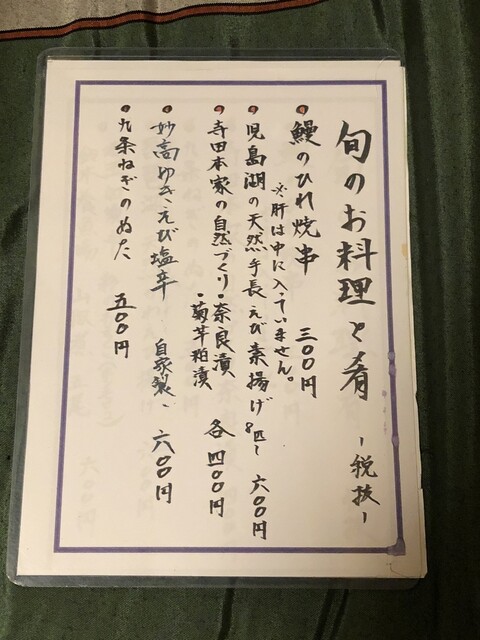 旬のお料理と肴 ー税抜ー
• 鰻のひれ焼串 三〇〇円
※肝は中に入っていません。
• 児島湖の天然手長えび素揚げ 8匹〜 六〇〇円
• 寺田本家の自然づくり・奈良漬
・菊芋粕漬 各四〇〇円
• 妙高ゆきえび塩辛 自家製、六〇〇円
• 九条ねぎのぬた 五〇〇円